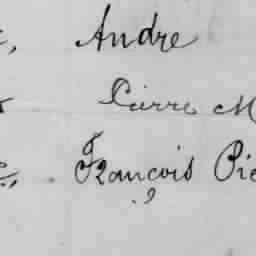 Andre
Pierre M
François Pie